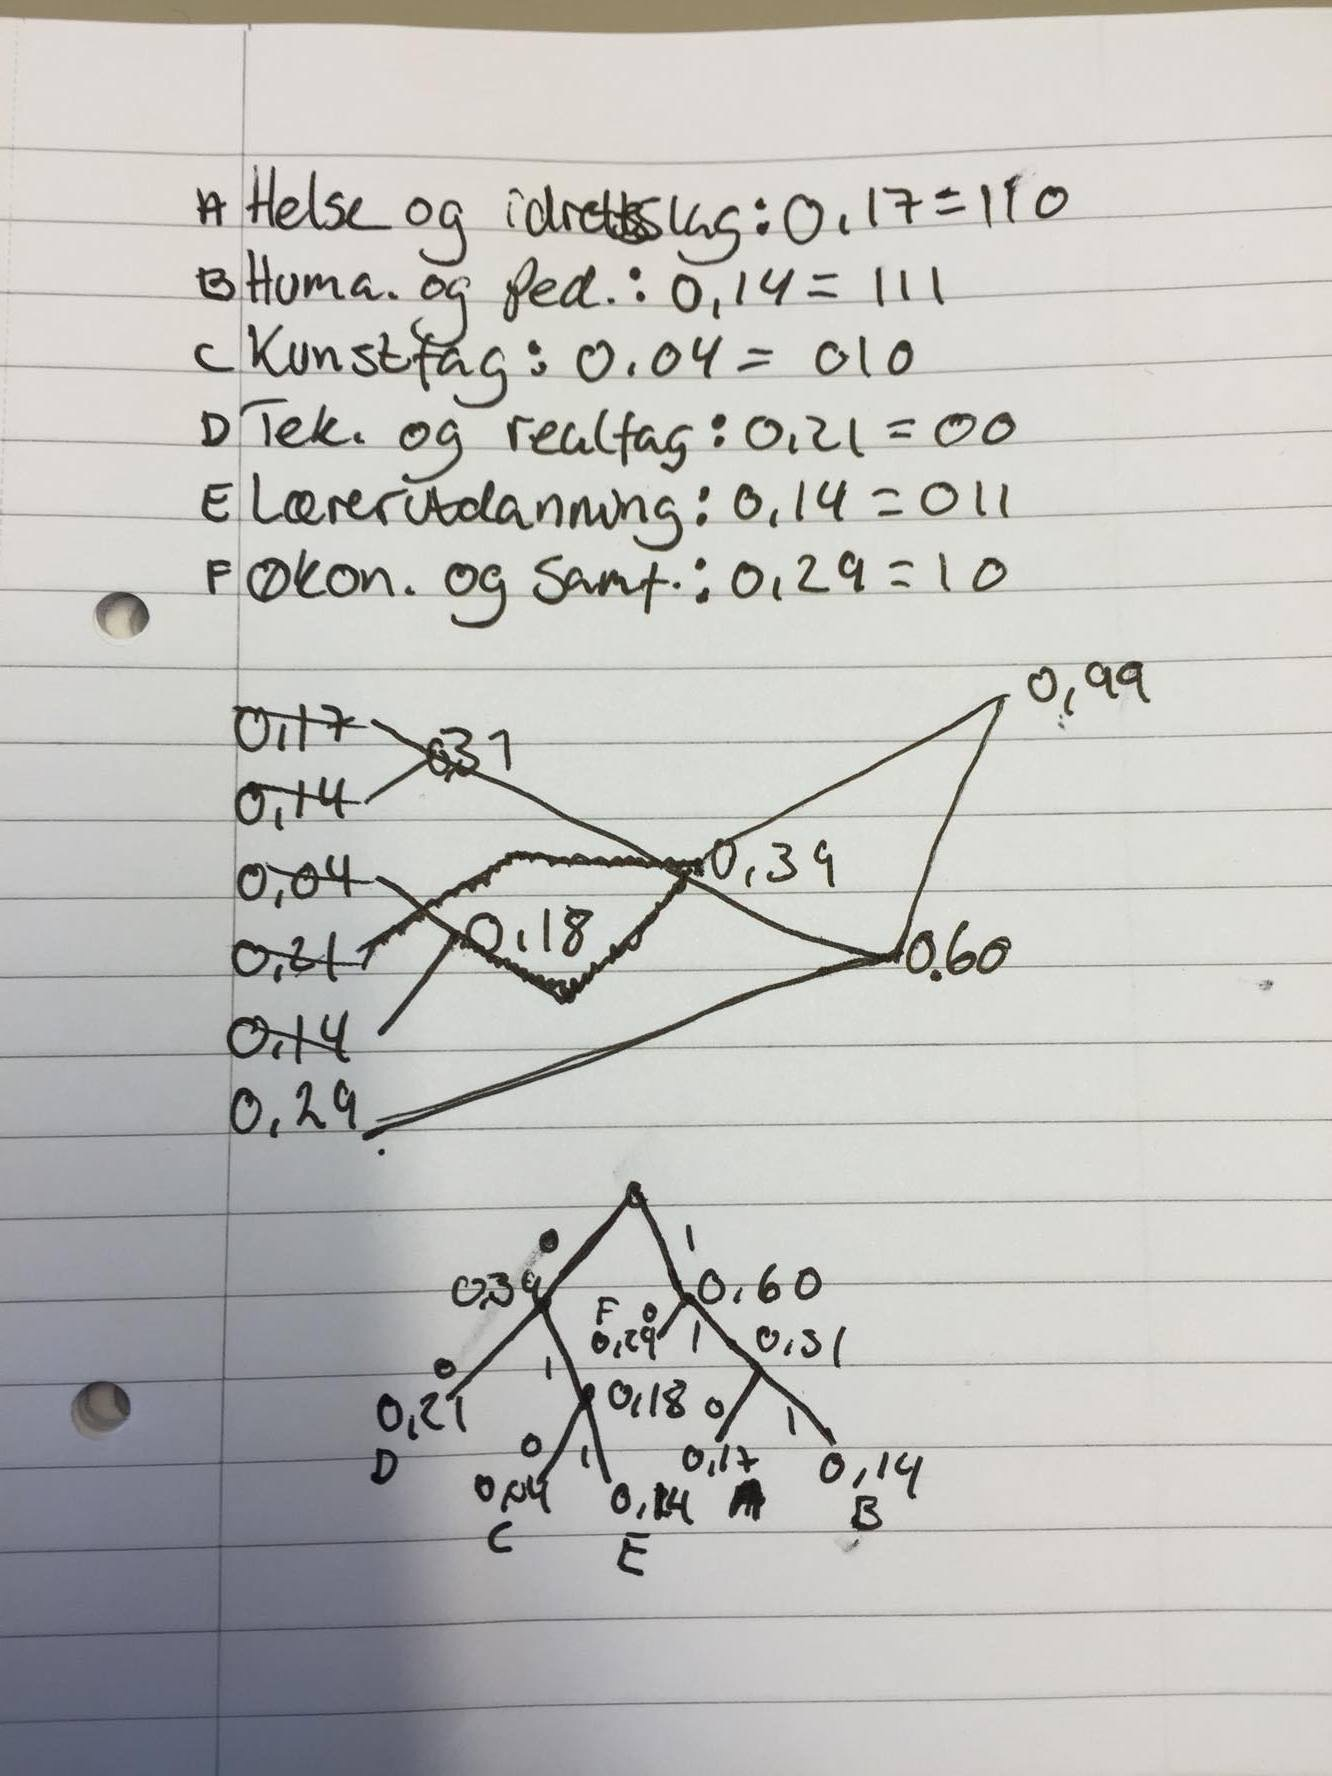 A Helse og idrettslag: 0,17 = 110
B Huma. og ped.: 0,14 = 111
C Kunstfag: 0.04 = 010
D Tek. og realfag: 0,21 = 00
E Lærerutdanning: 0,14 = 011
F Økon. og samf.: 0,29 = 10
0,99
0,17
0,31
0,14
0,04
0,39
0,21
0,18
0.60
0,14
0,29
0 1
0,39 0,60
F 0
0,29 1 0,31
0 1
0,21 0,18 0 1
D 0 1 0,17 0,14
0,04 0,14 A B
C E